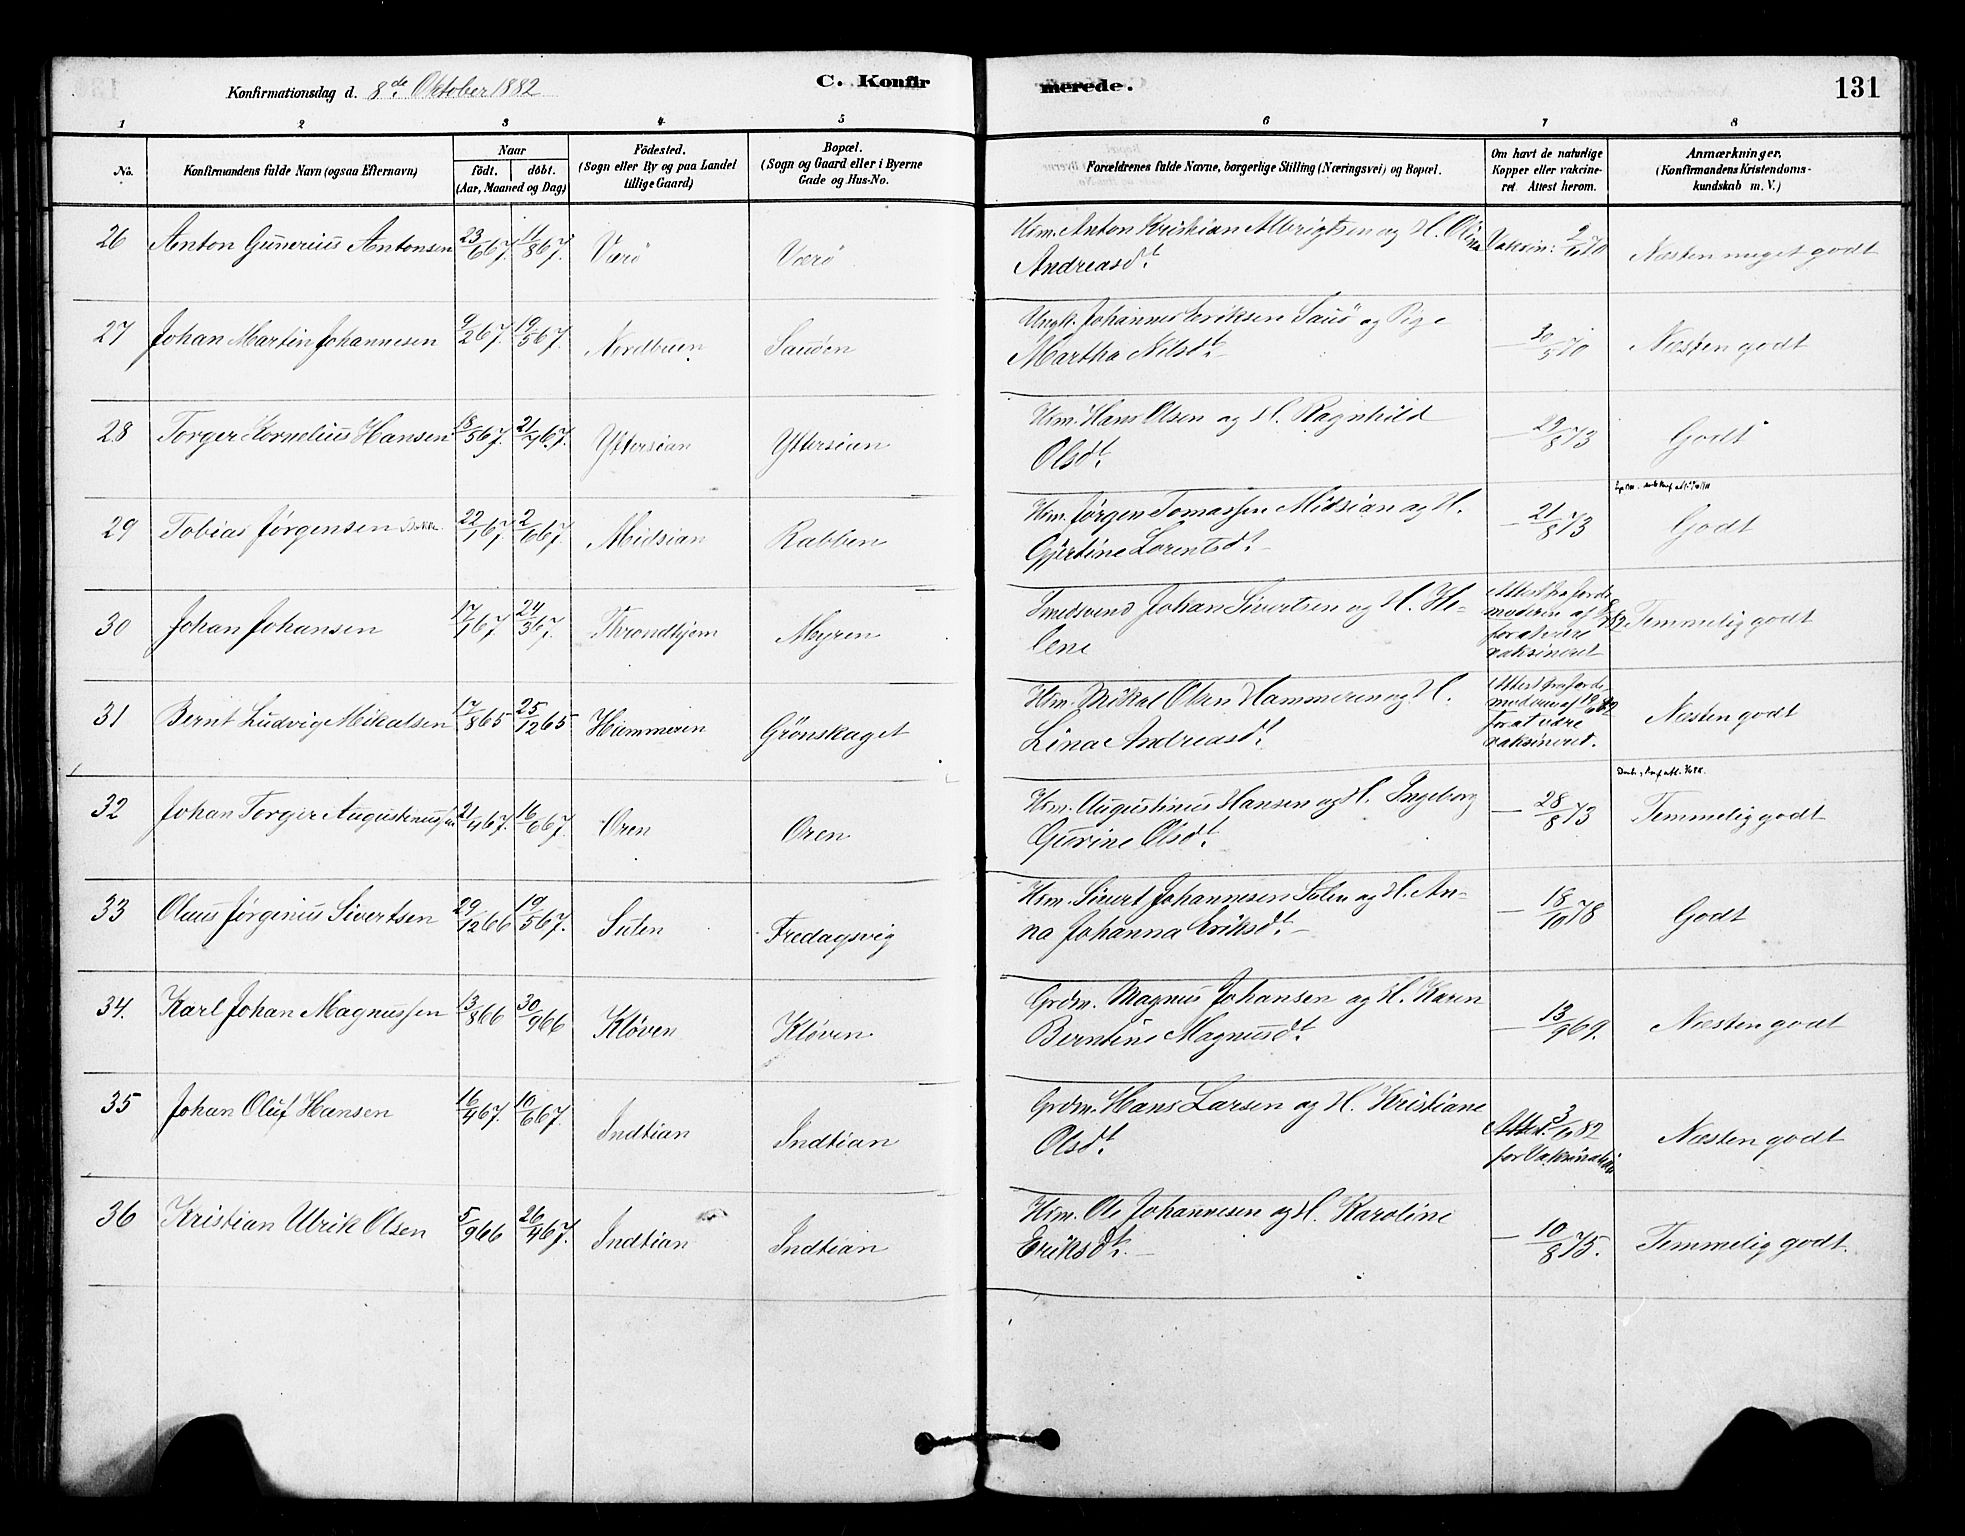 Konfirmationsdag d. 8de Oktober 1882
C. Konfirmerede.
131
1 2 3 4 5 6 7 8
No. Konfirmandens fulde Navn (ogsaa Efternavn) Naar født. døbt. (Aar, Maaned og Dag) Födested. (Sogn eller By og paa Landet tillige Gaard) Bopæl. (Sogn og Gaard eller i Byerne Gade og Hus-No. Forældrenes fulde Navne, borgerlige Stilling (Næringsvei) og Bopæl. Om havt de naturlige Kopper eller vakcineret Attest herom. Anmærkninger. (Konfirmandens Kristendomskundskab m. V.)
26 Anton Gunerius Antonsen 23/6 67. 11/8 67. Værö Værö Hm. Anton Kristian Albrigtsen og H. Olina Andreasdt. Vaksin: Næsten meget godt
27 Johan Martin Johannesen 9/2 67. 19/5 67. Nordbuen Sauöen Ungk. Johannes Eriksen Sauö og Pige Martha Nilsdt. — 30/5 70 Næsten godt
28 Torger Kornelius Hansen 18/5 67. 21/7 67. Yttersian Yttersian Hm. Hans Olsen og H. Ragnhild Olsdt. — 29/8 73 Godt
29 Tobias Jørgensen 22/1 67. 2/6 67. Midsian Rabben Hm. Jørgen Tomassen Midsian og H. Gjertine Lorentsdt. — 21/8 73 Godt
30 Johan Johansen 17/1 67. 24/3 67. Throndhjem Myren Smedsvend Johan Sivertsen og H. Helene Attest fra Jordemoderen af for at være vaksineret Temmelig godt
31 Bernt Ludvig Mikalsen 17/8 65 25/12 65 Hammeren Grönskaget Hm. Mikal Olsen Hammeren og H. Lina Andreasdt. Attest fra Jordemoderen af for at være vaksineret. Næsten godt
32 Johan Torger Augustinussen 21/4 67. 16/6 67. Oren Oren Hm. Augustinus Hansen og H. Ingeborg Gurine Olsdt. — 28/8 73 Temmelig godt
33 Olaus Jørginus Sivertsen 29/12 66 19/5 67. Sulen Fredagsvig Hm. Sivert Johannesen Sulen og H. Anna Johanna Eriksdt. — 18/10 78 Godt
34. Karl Johan Magnussen 13/8 66 30/9 66 Kløven Kløven Grdm. Magnus Johansen og H. Karen Berntine Magnusdt. — 13/9 69. Næsten godt
35 Johan Oluf Hansen 16/4 67. 10/6 67. Indtian Indtian Grdm. Hans Larsen og H. Kristiane Olsdt. Attest: 82 for Vaksination Næsten godt
36 Kristian Ulrik Olsen 5/9 66 26/4 67. Indtian Indtian Hm. Ole Johannesen og H. Karoline Eriksdt. — 10/8 75. Temmelig godt.